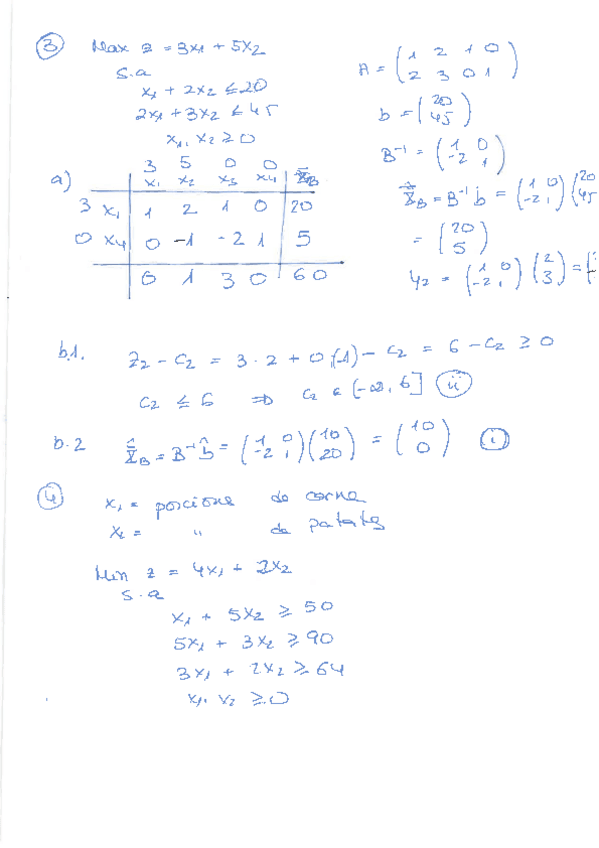 ③ Max z = 3x₁ + 5x₂
s.a
x₁ + 2x₂ ≤ 20
2x₁ + 3x₂ ≤ 45
x₁, x₂ ≥ 0
A = (1 2 1 0
2 3 0 1)
b = (20
45)
B⁻¹ = (1 0
-2 1)
X̂_B = B⁻¹ b = (1 0
-2 1) (20
45
= (20
5)
y₂ = (1 0
-2 1) (2
3) = (
a)
3 5 0 0
x₁ x₂ x₃ x₄ X̂_B
3 x₁ 1 2 1 0 20
0 x₄ 0 -1 -2 1 5
0 1 3 0 60
b.1. z₂ - c₂ = 3·2 + 0(-1) - c₂ = 6 - c₂ ≥ 0
c₂ ≤ 6 ⇒ c₂ ∈ (-∞, 6] (ii)
b.2 X̂_B = B⁻¹ b̂ = (1 0
-2 1) (10
20) = (10
0) (i)
④ x₁ = porcione de carne
x₂ = " de patatas
Min z = 4x₁ + 2x₂
s.a
x₁ + 5x₂ ≥ 50
5x₁ + 3x₂ ≥ 90
3x₁ + 2x₂ ≥ 64
x₁, x₂ ≥ 0